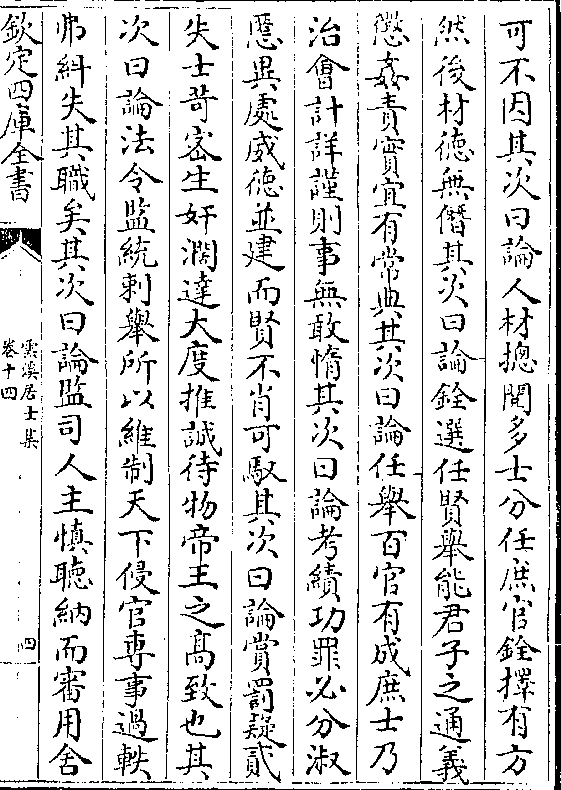 可不因其次曰論人材摠閱多士分任庶官銓擇有方
然後材德無僭其次曰論銓選任賢舉能君子之通義
懲姦責實宜有常典其次曰論任舉百官有成庶士乃
治㑹計詳謹則事無敢惰其次曰論考績功罪必分淑
慝異處威德並建而賢不肖可馭其次曰論賞罰疑貳
失士苛宻生奸濶達大度推誠待物帝王之髙致也其
次曰論法令監統刺舉所以維制天下侵官専事過軼
弗糾失其職矣其次曰論監司人主慎聴納而審用舍
欽定四庫全書
雲溪居士集
卷十四
四